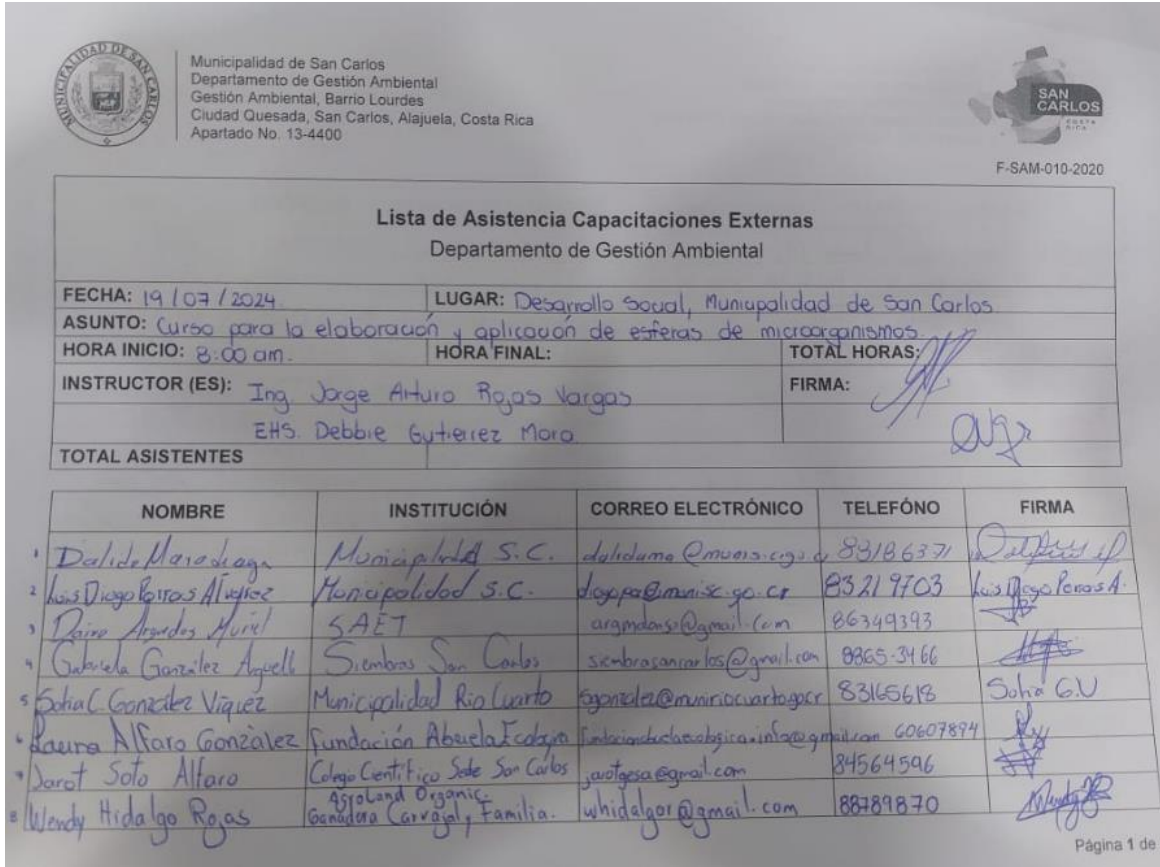 MUNICIPALIDAD DE SAN CARLOS
Municipalidad de San Carlos
Departamento de Gestión Ambiental
Gestión Ambiental, Barrio Lourdes
Ciudad Quesada, San Carlos, Alajuela, Costa Rica
Apartado No. 13-4400
SAN
CARLOS
COSTA
RICA
F-SAM-010-2020
Lista de Asistencia Capacitaciones Externas
Departamento de Gestión Ambiental
FECHA: 19/07/2024 LUGAR: Desarrollo Social, Municipalidad de San Carlos
ASUNTO: Curso para la elaboración y aplicación de esferas de microorganismos.
HORA INICIO: 8:00 am. HORA FINAL: TOTAL HORAS:
INSTRUCTOR (ES): Ing. Jorge Arturo Rojas Vargas FIRMA:
EHS. Debbie Gutierrez Mora
TOTAL ASISTENTES
NOMBRE INSTITUCIÓN CORREO ELECTRÓNICO TELEFÓNO FIRMA
1 Municipalidad S.C. 83186371
2 Luis Diego Porras Alvarez Municipalidad S.C. diegopa@munisc.go.cr 83219703 Luis Diego Porras A.
3 SAET @gmail.com 86349393
4 Gabriela González Siembras San Carlos siembrasancarlos@gmail.com 8865-3466
5 Sofia C. González Víquez Municipalidad Rio Cuarto sgonzalez@muniriocuarto.go.cr 83165618 Sofia G.V
6 Laura Alfaro González Fundación Abuela Ecología 60607894
7 Jarot Soto Alfaro Colegio Científico Sede San Carlos jarotgesa@gmail.com 84564596
8 Wendy Hidalgo Rojas Agroland Organic. Ganadera Carvajal y Familia. whidalgor@gmail.com 88789870
Página 1 de